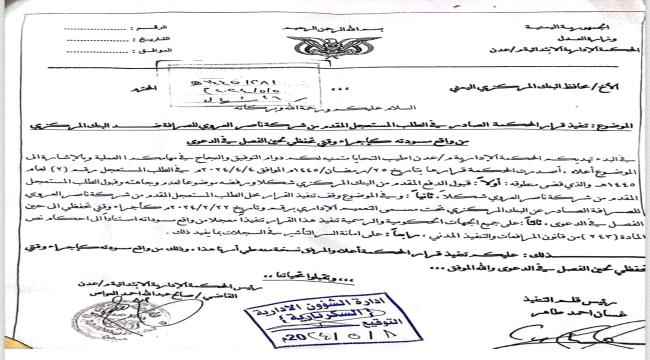 الجمهورية اليمنية
وزارة العدل
المحكمة الإدارية الابتدائية م/عدن
بسم الله الرحمن الرحيم
الرقم :
التاريخ :
الموافق :
الأخ/ محافظ البنك المركزي اليمني ... المحترم
السلام عليكم ورحمة الله وبركاته
الموضوع : تنفيذ قرار المحكمة الصادر في الطلب المستعجل المقدم من شركة ناصر العروي للصرافة ضد البنك المركزي
من واقع مسودته كإجراء وقتي تحفظي لحين الفصل في الدعوى
في البدء تهديكم المحكمة الإدارية م/عدن أطيب التحايا متمنية لكم دوام التوفيق والنجاح في مهامكم العملية وبالإشارة إلى
الموضوع أعلاه . أصدرت المحكمة قرارها بتاريخ ٢٥/رمضان/١٤٤٥هـ الموافق ٢٠٢٤/٤/٤م في الطلب المستعجل رقم (٢) لعام
١٤٤٥هـ والذي قضى منطوقه: أولاً: قبول الدفع المقدم من البنك المركزي شكلاً ورفضه موضوعاً لعدم وجاهته وقبول الطلب المستعجل
المقدم من شركة ناصر العروي شكلاً. ثانياً: وفي الموضوع وقف تنفيذ القرار محل الطلب المستعجل المقدم من شركة ناصر العروي
للصرافة الصادر عن البنك المركزي تحت مسمى التعميم الإداري رقم وتاريخ ٢٠٢٤/٢/٢٢م كإجراء وقتي تحفظي إلى حين
الفصل في الدعوى. ثالثاً: على جميع الجهات الحكومية والرسمية تنفيذ هذا القرار تنفيذاً معجلاً من واقع مسودته استناداً إلى أحكام نص
المادة (٢٤٣) من قانون المرافعات والتنفيذ المدني. رابعاً: على أمانة السر التأشير في السجلات بما يفيد ذلك.
ذلك: عليكم تنفيذ قرار المحكمة أعلاه والمرفق نسخة منه طي أمرنا هذا. وذلك من واقع مسودته كإجراء وقتي
تحفظي لحين الفصل في الدعوى والله الموفق...
...وتقبلوا تحياتنا...
رئيس قلم التنفيذ
غسان أحمد طاهر
رئيس المحكمة الإدارية الابتدائية م/عدن
القاضي/ صالح عبدالله أحمد
إدارة الشؤون الإدارية
(السكرتارية)
التوقيع
٨ / ٥ / 20٢٤م